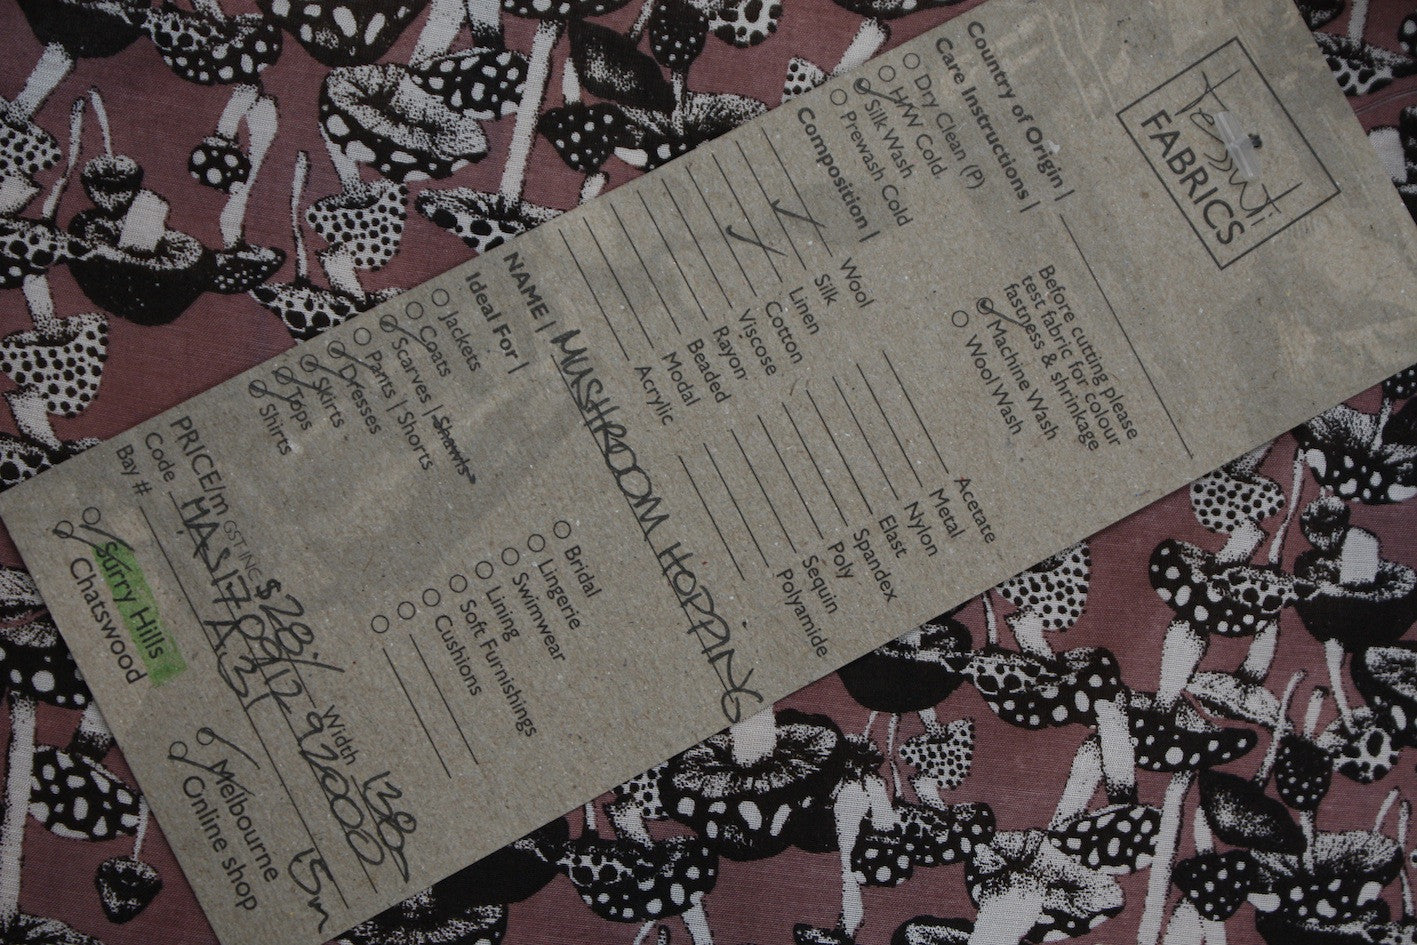 Tessuti
FABRICS
Country of Origin |
Care Instructions |
Dry Clean (P)
H/W Cold
Silk Wash
Prewash Cold
Before cutting please
test fabric for colour
fastness & shrinkage
Machine Wash
Wool Wash
Composition |
Wool
Silk
Linen
Cotton
Viscose
Rayon
Beaded
Modal
Acrylic
Acetate
Metal
Nylon
Elast
Spandex
Poly
Sequin
Polyamide
NAME | MUSHROOM HOPPING
Ideal For |
Jackets
Coats
Scarves | Shawls
Pants | Shorts
Dresses
Skirts
Tops
Shirts
Bridal
Lingerie
Swimwear
Lining
Soft Furnishings
Cushions
PRICE/m GST INC $28./ Width
Code
Bay #
15m
Surry Hills
Chatswood
Melbourne
Online shop